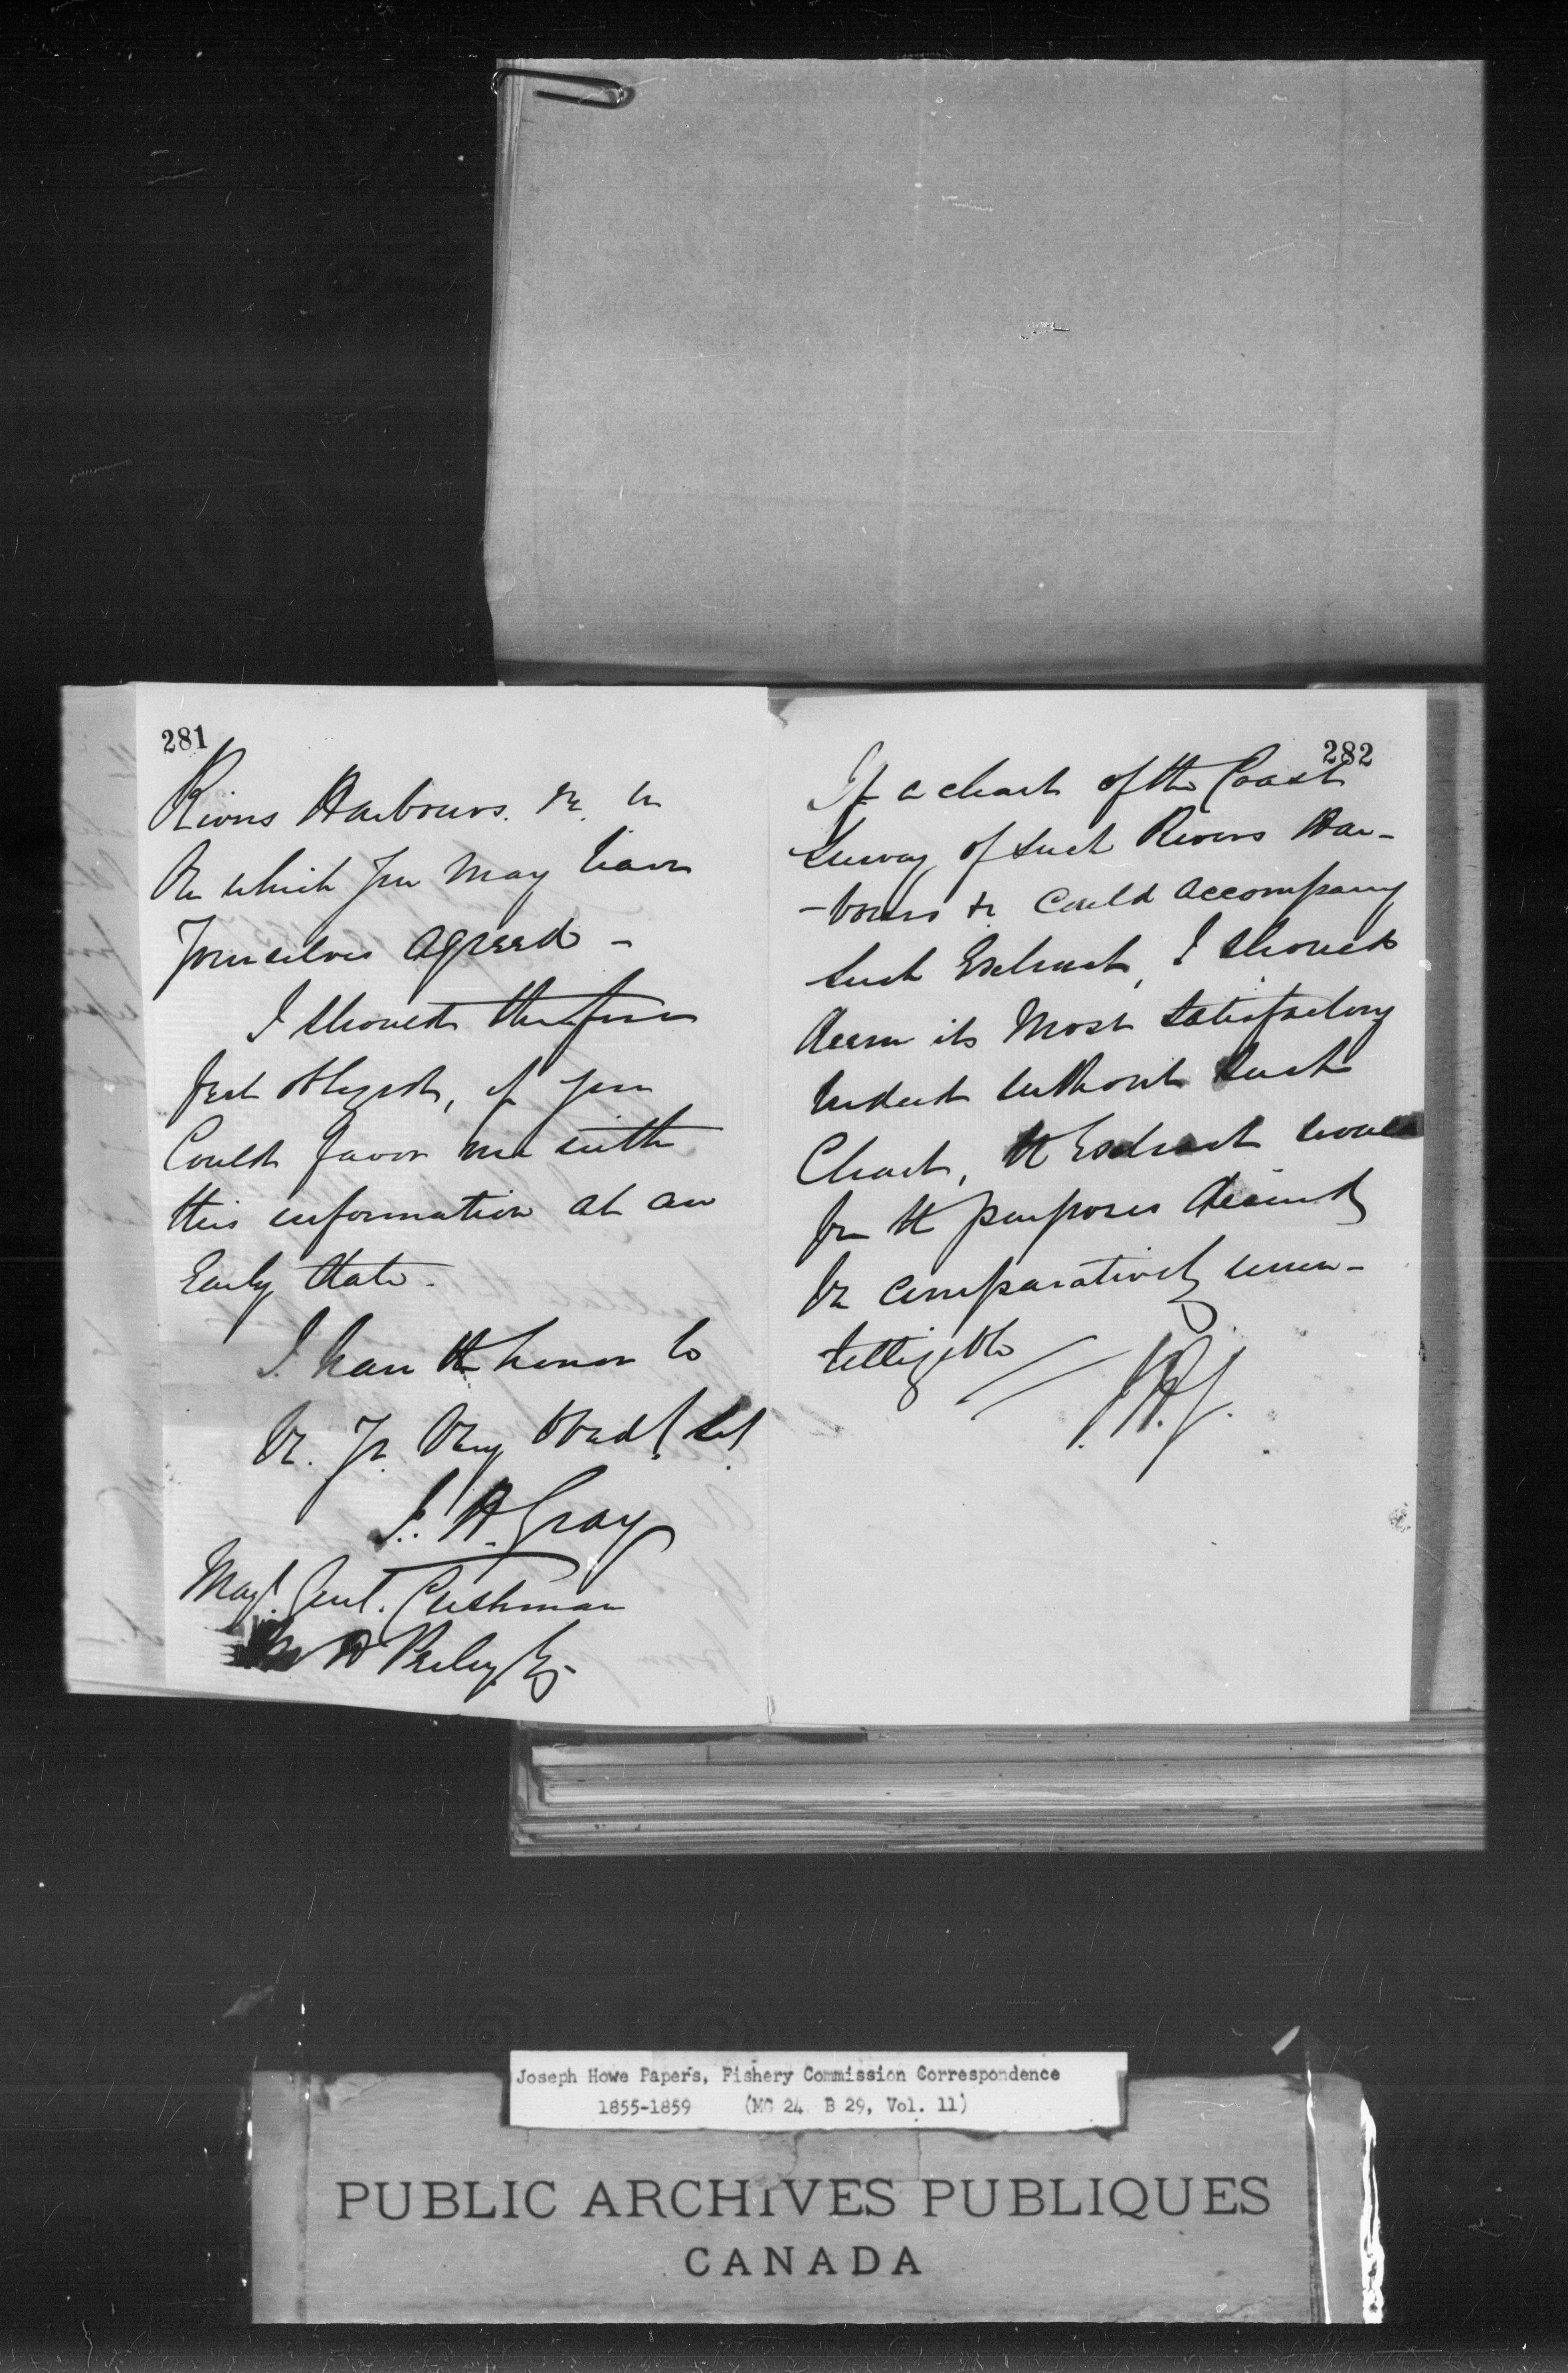 281
Rivers Harbours. &c. in
On which you may have
Yourselves agreed -
I should therefore
feel obliged, if you
Could favor me with
this information at an
Early date.
I have the honor to
be. Yr. Very Obedt. Sert.
J. H. Gray
Majr. Genl. Cushman
H Perley. Esq
282
If a chart of the Coast
Survey of such Rivers Har-
-bours &c could accompany
such Extract, I should
deem it Most satisfactory
Indeed without such
Chart, the Extract would
for the purposes desired
be comparatively unin-
telligible
J.H.G.
Joseph Howe Papers, Fishery Commission Correspondence
1855-1859 (MG 24 B 29, Vol. 11)
PUBLIC ARCHIVES PUBLIQUES
CANADA